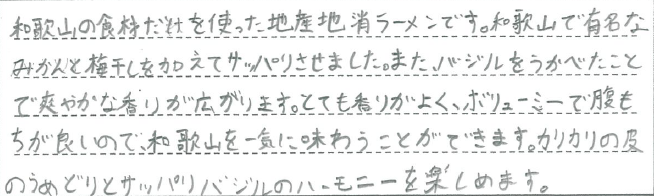 和歌山の食材だけを使った地産地消ラーメンです。和歌山で有名な
みかんと梅干しを加えてサッパリさせました。また、バジルをうかべたこと
で爽やかな香りが広がります。とても香りがよく、ボリューミーで腹も
ちが良いので、和歌山を一気に味わうことができます。カリカリの皮
のうめどりとサッパリバジルのハーモニーを楽しめます。